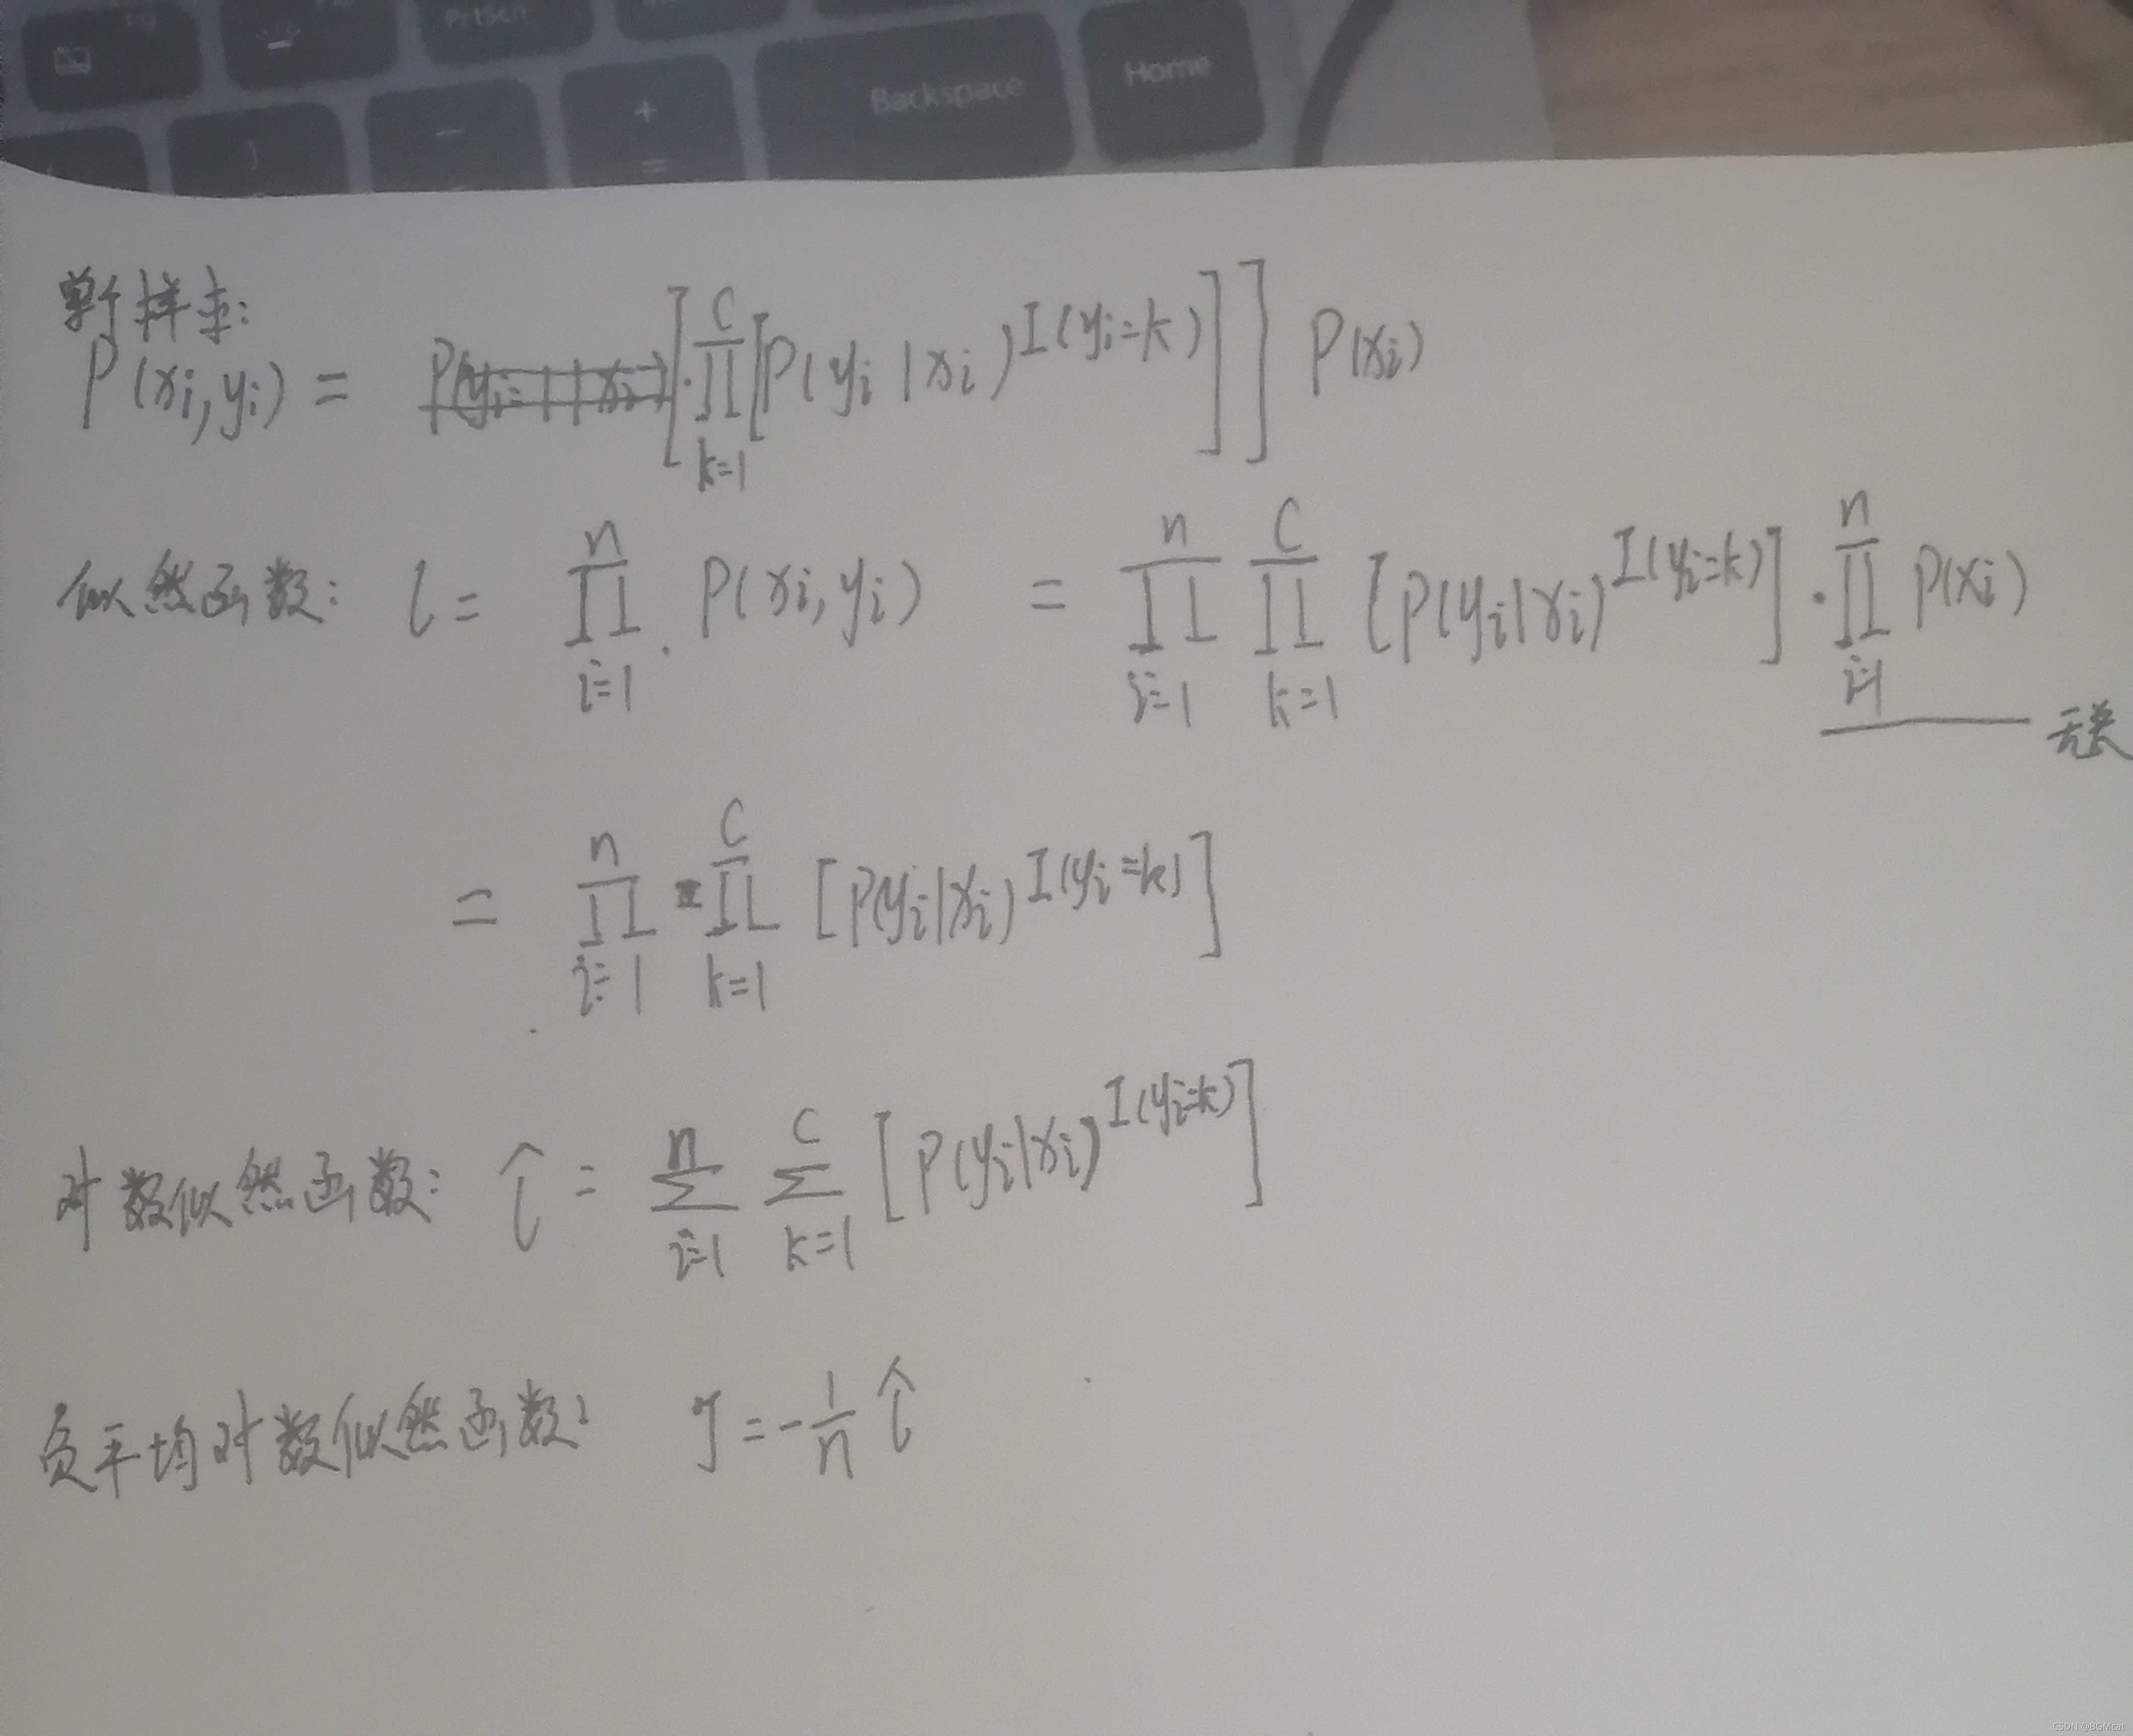 PrtScn
Backspace
Home
+
=
单个样本:
P(xi,yi) = [∏_{k=1}^{C} [P(yi|xi)^{I(yi=k)}]] P(xi)
似然函数: l = ∏_{i=1}^{n} P(xi,yi) = ∏_{i=1}^{n} ∏_{k=1}^{C} [P(yi|xi)^{I(yi=k)}] · ∏_{i=1}^{n} P(xi)
无关
= ∏_{i=1}^{n} ∏_{k=1}^{C} [P(yi|xi)^{I(yi=k)}]
对数似然函数: l̂ = ∑_{i=1}^{n} ∑_{k=1}^{C} [P(yi|xi)^{I(yi=k)}]
负平均对数似然函数: J = -1/n l̂
CSDN @BGMcat